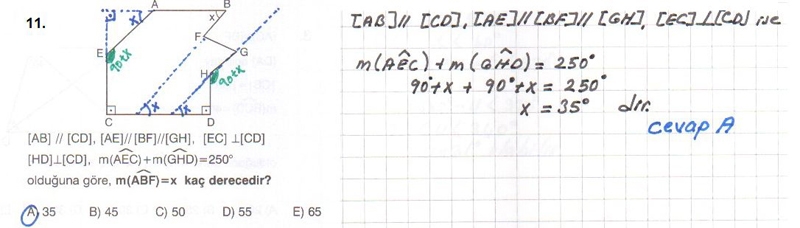 11.
A
B
x
x
F
E
90+x
G
H
90+x
x
x
C
D
[AB] // [CD], [AE]//[BF]//[GH], [EC] ⊥[CD]
[HD]⊥[CD], m(AEC)+m(GHD)=250°
olduğuna göre, m(ABF)=x kaç derecedir?
A) 35 B) 45 C) 50 D) 55 E) 65
[AB]// [CD], [AE]//[BF]//[GH], [EC]⊥[CD] ise
m(AEC)+m(GHD)= 250°
90°+x + 90°+x = 250°
x = 35° dir.
cevap A